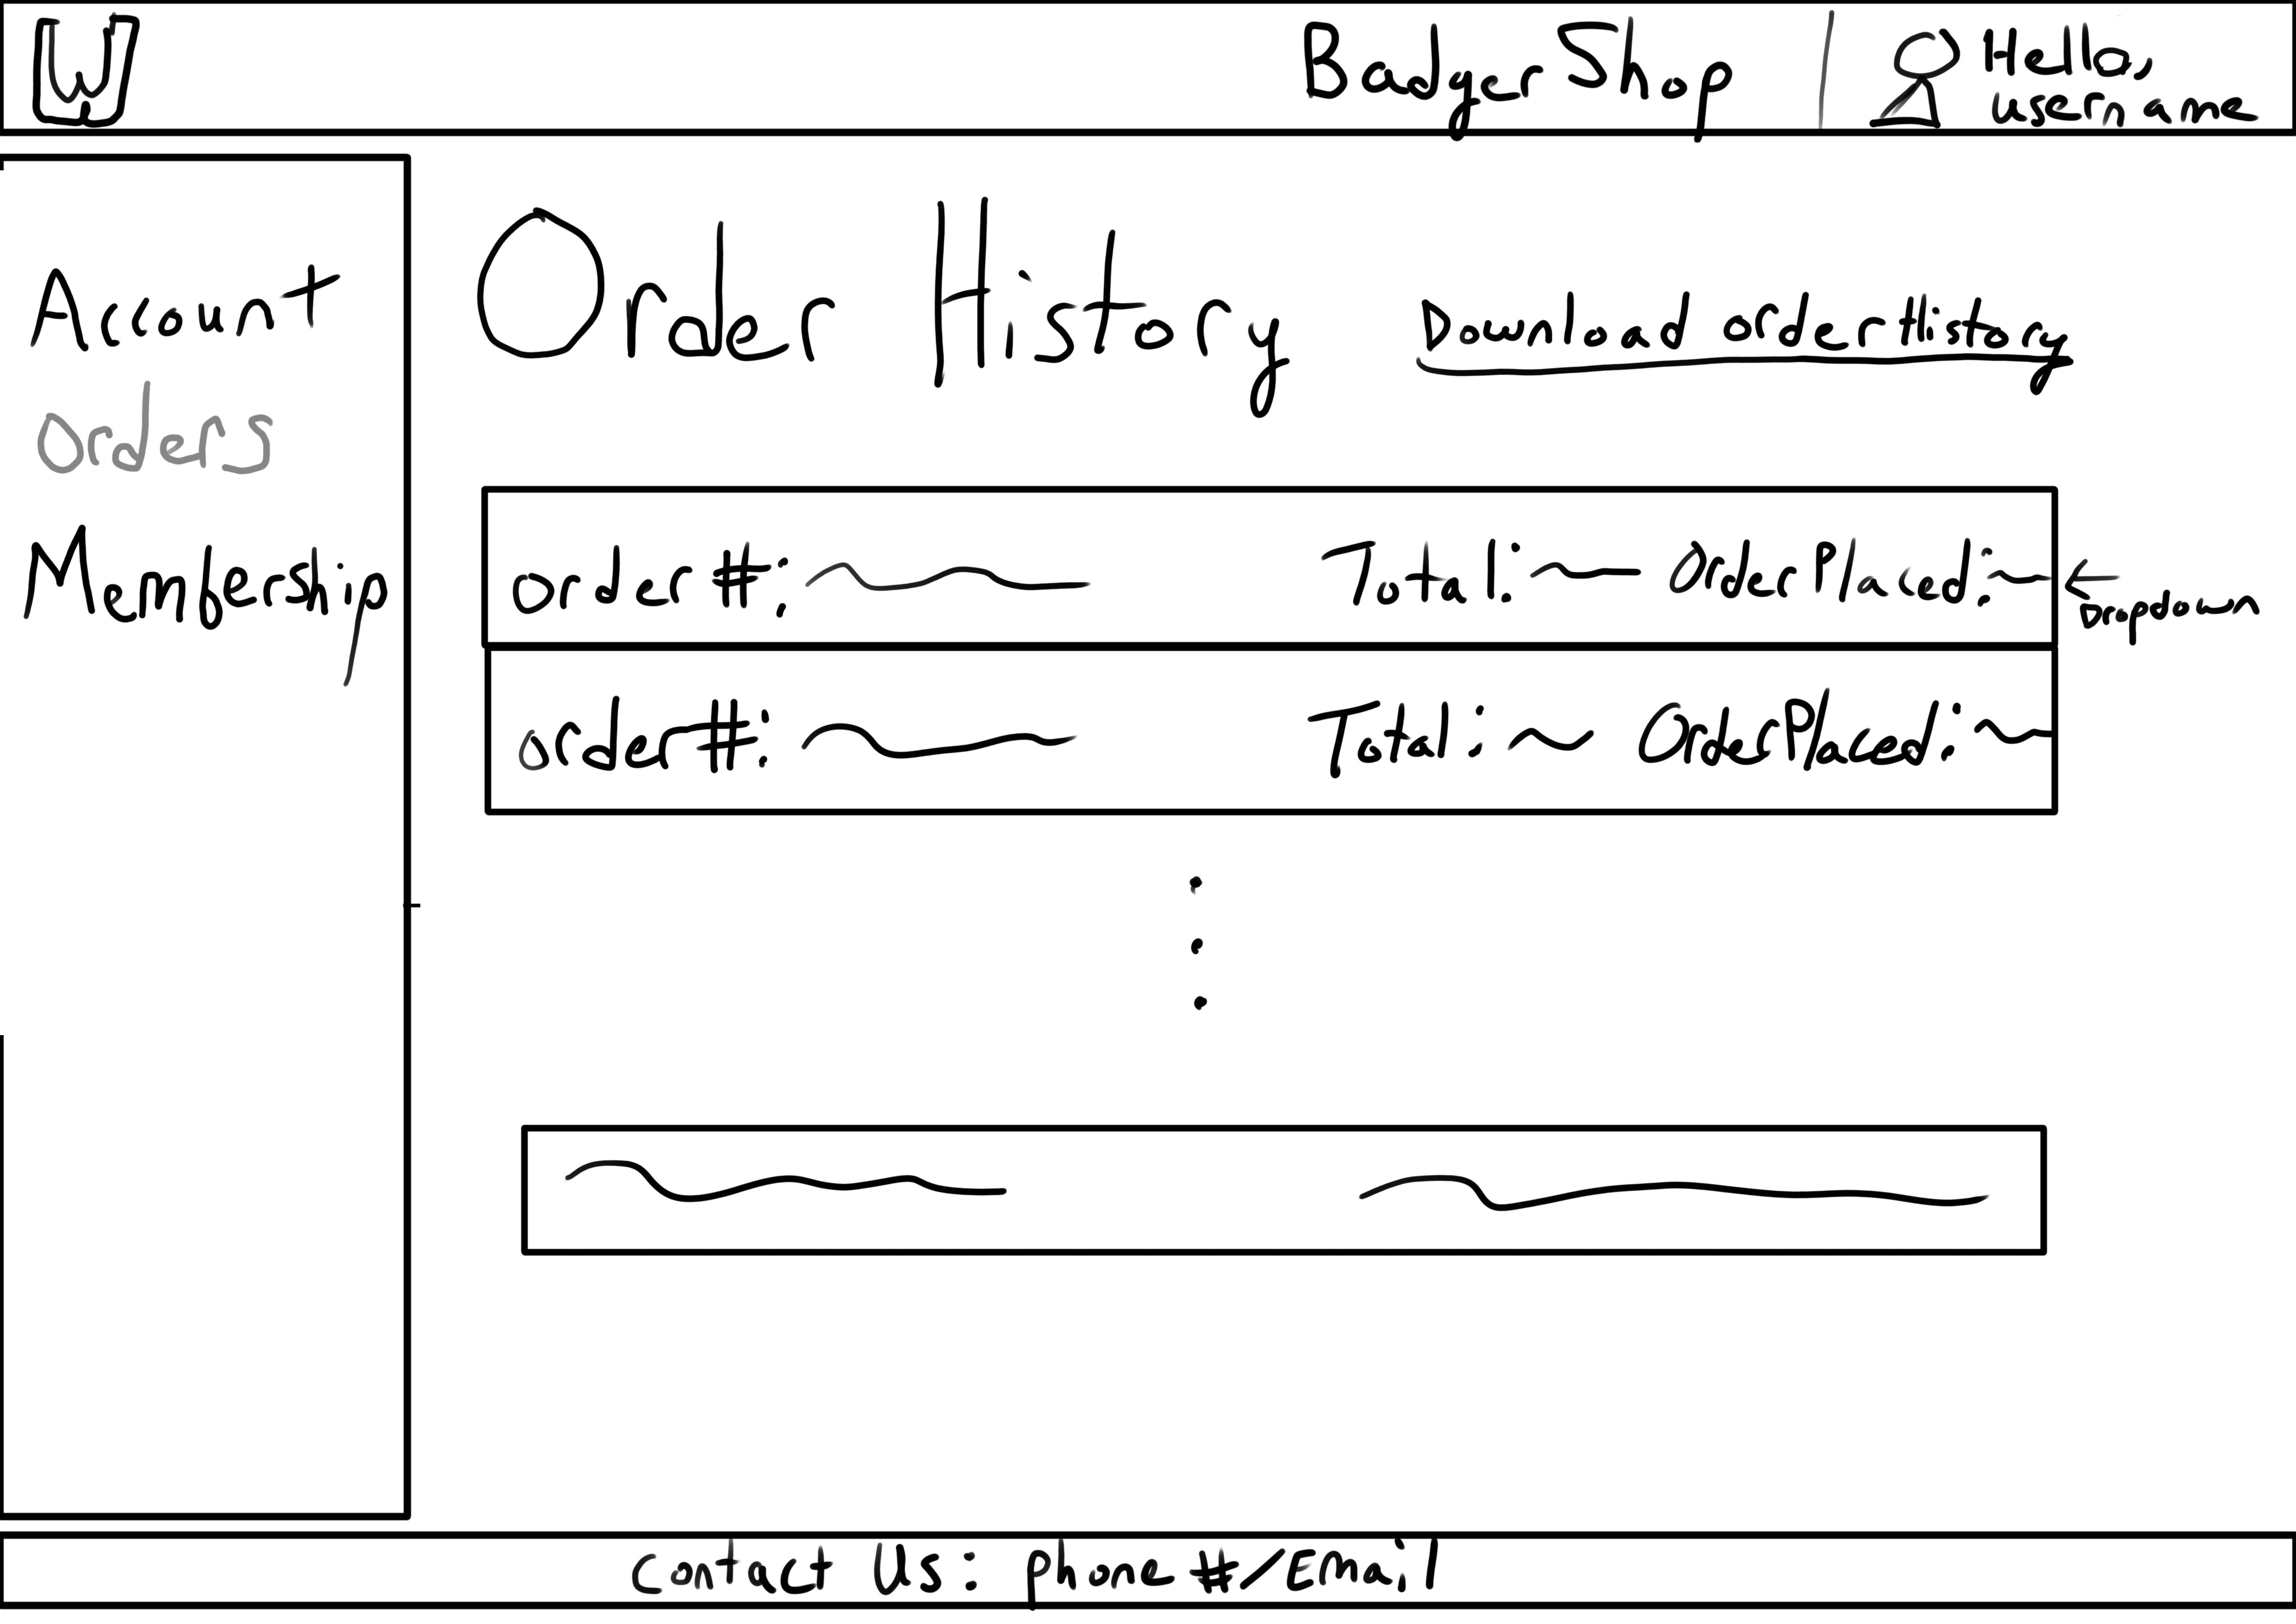 W
Badger Shop
Hello,
username
Account
Orders
Membership
Order History
Download orderHistory
order #:
Total:
Order Placed:
Dropdown
order #:
Total:
Order Placed:
Contact Us: phone #/Email